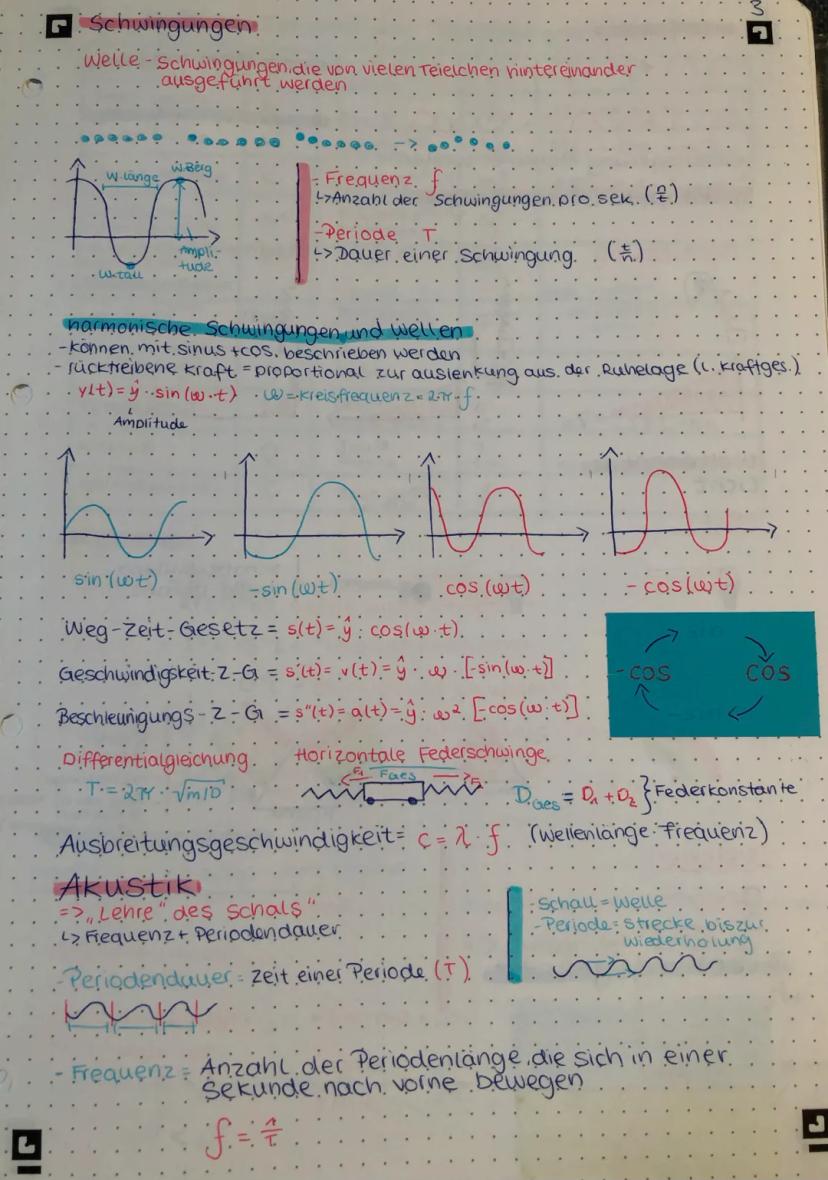 3
Schwingungen
Welle - Schwingungen, die von vielen Teielchen hintereinander
ausgeführt werden
W.länge
W.Berg
Ampli-
tude
W.tal
- Frequenz f
↳ Anzahl der Schwingungen pro sek. (n/t)
- Periode T
↳ Dauer einer Schwingung (t/n)
harmonische Schwingungen und wellen
- können mit sinus + cos. beschrieben werden
- rücktreibene Kraft = proportional zur auslenkung aus der Ruhelage (l. kraftges.)
y(t) = ŷ · sin (ω · t) ω = kreisfrequenz = 2π · f
Amplitude
sin (ωt)
- sin (ωt)
cos (ωt)
- cos (ωt)
Weg - Zeit - Gesetz = s(t) = ŷ · cos(ω · t)
Geschwindigskeit - Z - G = s'(t) = v(t) = ŷ · ω · [-sin(ω · t)]
Beschleunigungs - Z - G = s''(t) = a(t) = ŷ · ω² · [-cos(ω · t)]
- COS
COS
Differentialgleichung
T = 2π · √m/D
Horizontale Federschwinge
F₁ Fges F₂
Dges = D₁ + D₂ } Federkonstante
Ausbreitungsgeschwindigkeit = c = λ · f (Wellenlänge · Frequenz)
Akustik
=> „Lehre" des Schals"
↳ Frequenz + Periodendauer
- Schall = Welle
- Periode = strecke bis zur
wiederholung
- Periodendauer = Zeit einer Periode (T)
- Frequenz = Anzahl der Periodenlänge, die sich in einer
Sekunde nach vorne bewegen
f = 1/T